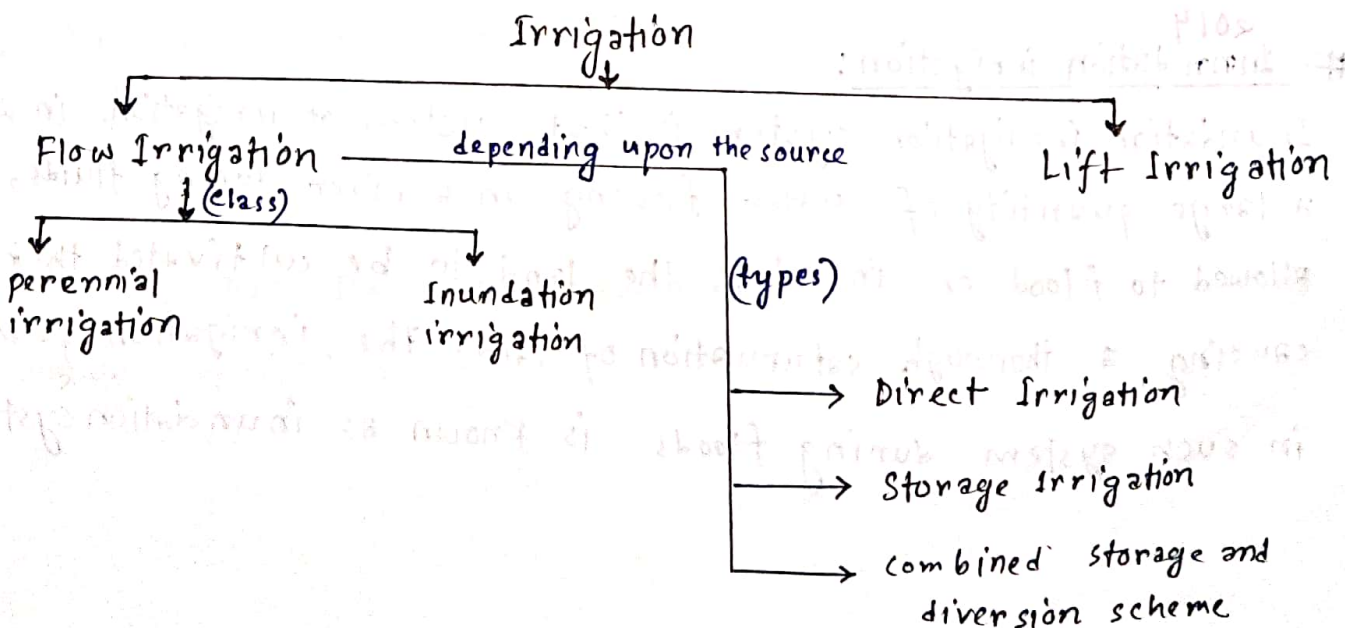 Irrigation
Flow Irrigation
depending upon the source
Lift Irrigation
(class)
perennial
irrigation
Inundation
irrigation
(types)
Direct Irrigation
Storage irrigation
combined storage and
diversion scheme